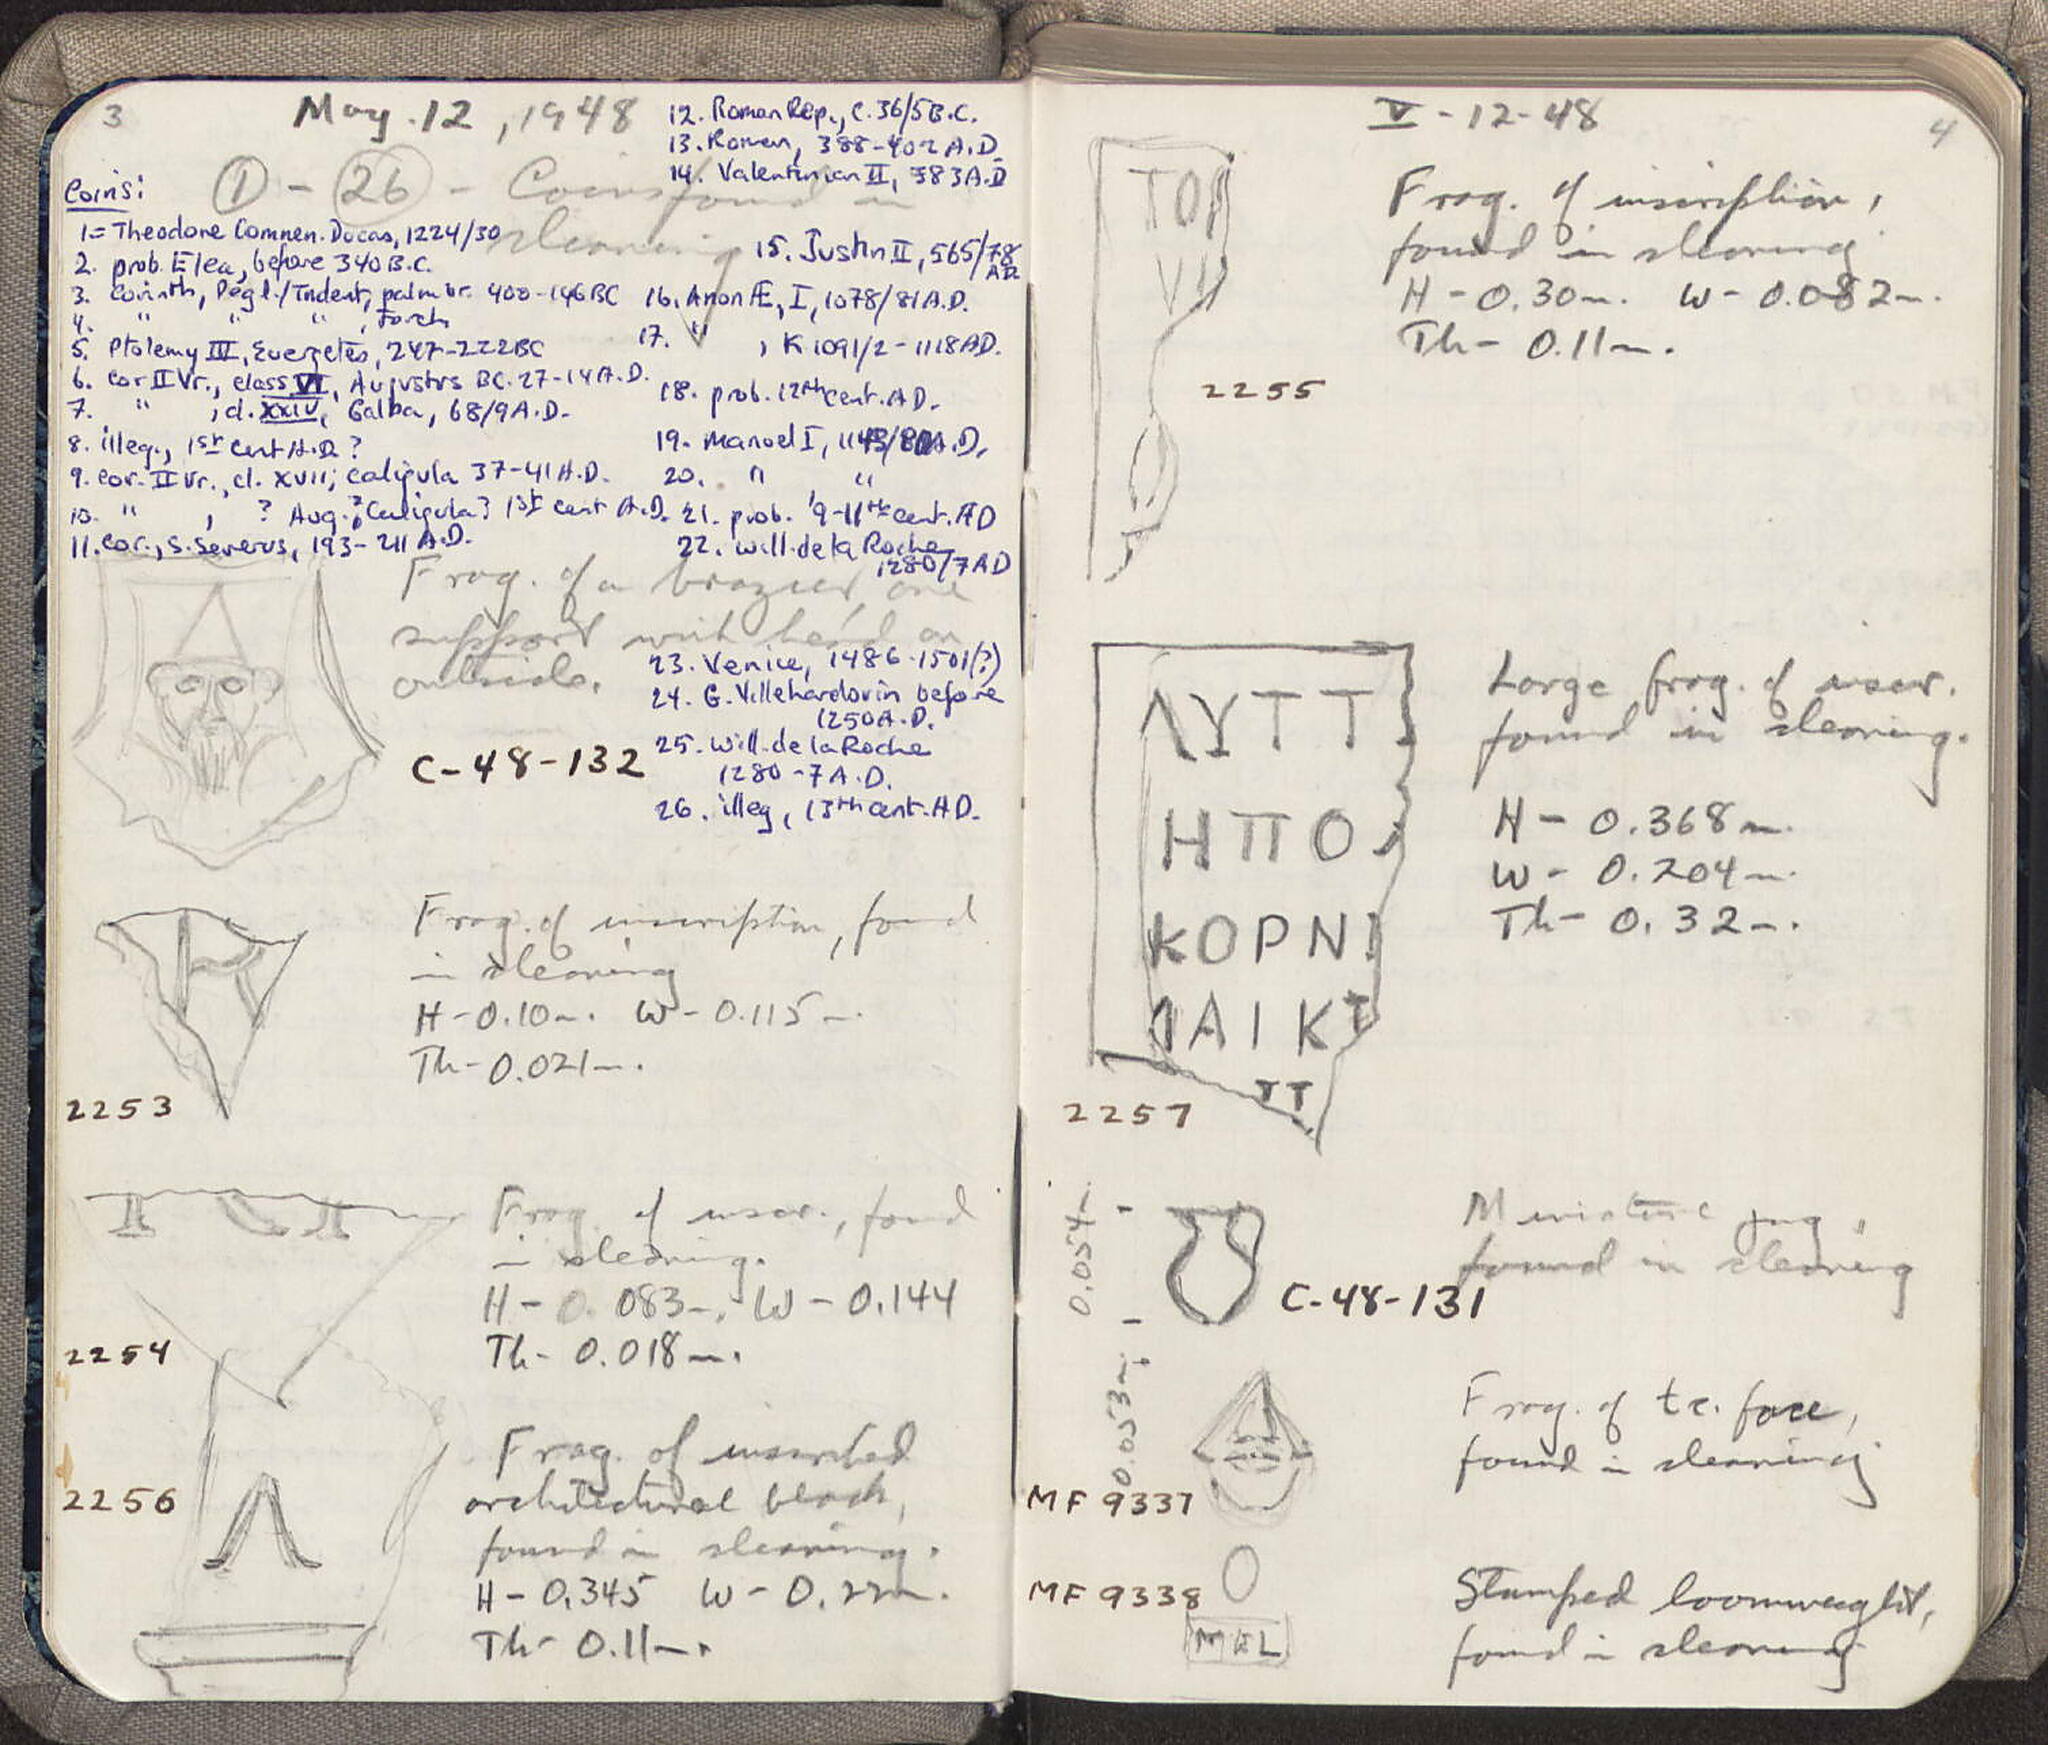 3
May. 12, 1948
① - ㉖ - Coins found in
cleaning
Coins:
1= Theodore Comnen. Ducas, 1224/30
2. prob. Elea, before 340 B.C.
3. Corinth, Peg l./Trident, palm br. 400-146 BC
4. " " " , Torch
5. Ptolemy III, Euergetes, 247-222 BC
6. Cor II Vr., class VI, Augustus BC. 27-14 A.D.
7. " , cl. XXIV, Galba, 68/9 A.D.
8. illeg., 1st cent A.D.?
9. Cor. II Vr., cl. XVII; Caligula 37-41 A.D.
10. " , ? Aug.? Caligula? 1st cent A.D.
11. Cor., S. Severus, 193-211 A.D.
12. Roman Rep., C. 36/5 B.C.
13. Roman, 388-402 A.D.
14. Valentinian II, 383 A.D
15. Justin II, 565/78
A.D.
16. Anon Æ, I, 1078/81 A.D.
17. " , K 1091/2-1118 AD.
18. prob. 12th cent. A.D.
19. Manuel I, 1143/80 A.D.
20. " "
21. prob. 9-11th cent. AD
22. Will. de la Roche
1280/7 AD
23. Venice, 1486-1501(?)
24. G. Villehardouin before
1250 A.D.
25. Will. de la Roche
1280-7 A.D.
26. illeg, 13th cent. A.D.
Frag. of a brazier, one
support with head on
outside.
C-48-132
Frag. of inscription, found
in cleaning
H-0.10m. W-0.115m.
Th-0.021m.
2253
Frag. of inscr., found
in cleaning.
H-0.083m. W-0.144
Th-0.018m.
2254
Frag. of inscribed
architectural block,
found in cleaning.
H-0.345 W-0.22m.
Th-0.11m.
2256
V-12-48
4
ΤΟ
Frag. of inscription,
found in cleaning
H-0.30m. W-0.082m.
Th-0.11m.
2255
ΛΥΤΤ
ΗΠΟ
ΚΟΡΝΙ
ΛΑΙΚΤ
ΤΤ
Large frag. of inscr.
found in cleaning.
H-0.368m.
W-0.204m.
Th-0.32m.
2257
0.054m.
Miniature jug,
found in cleaning
C-48-131
0.053m.
Frag. of tc. face,
found in cleaning
MF 9337
MF 9338
MEL
Stamped loomweight,
found in cleaning